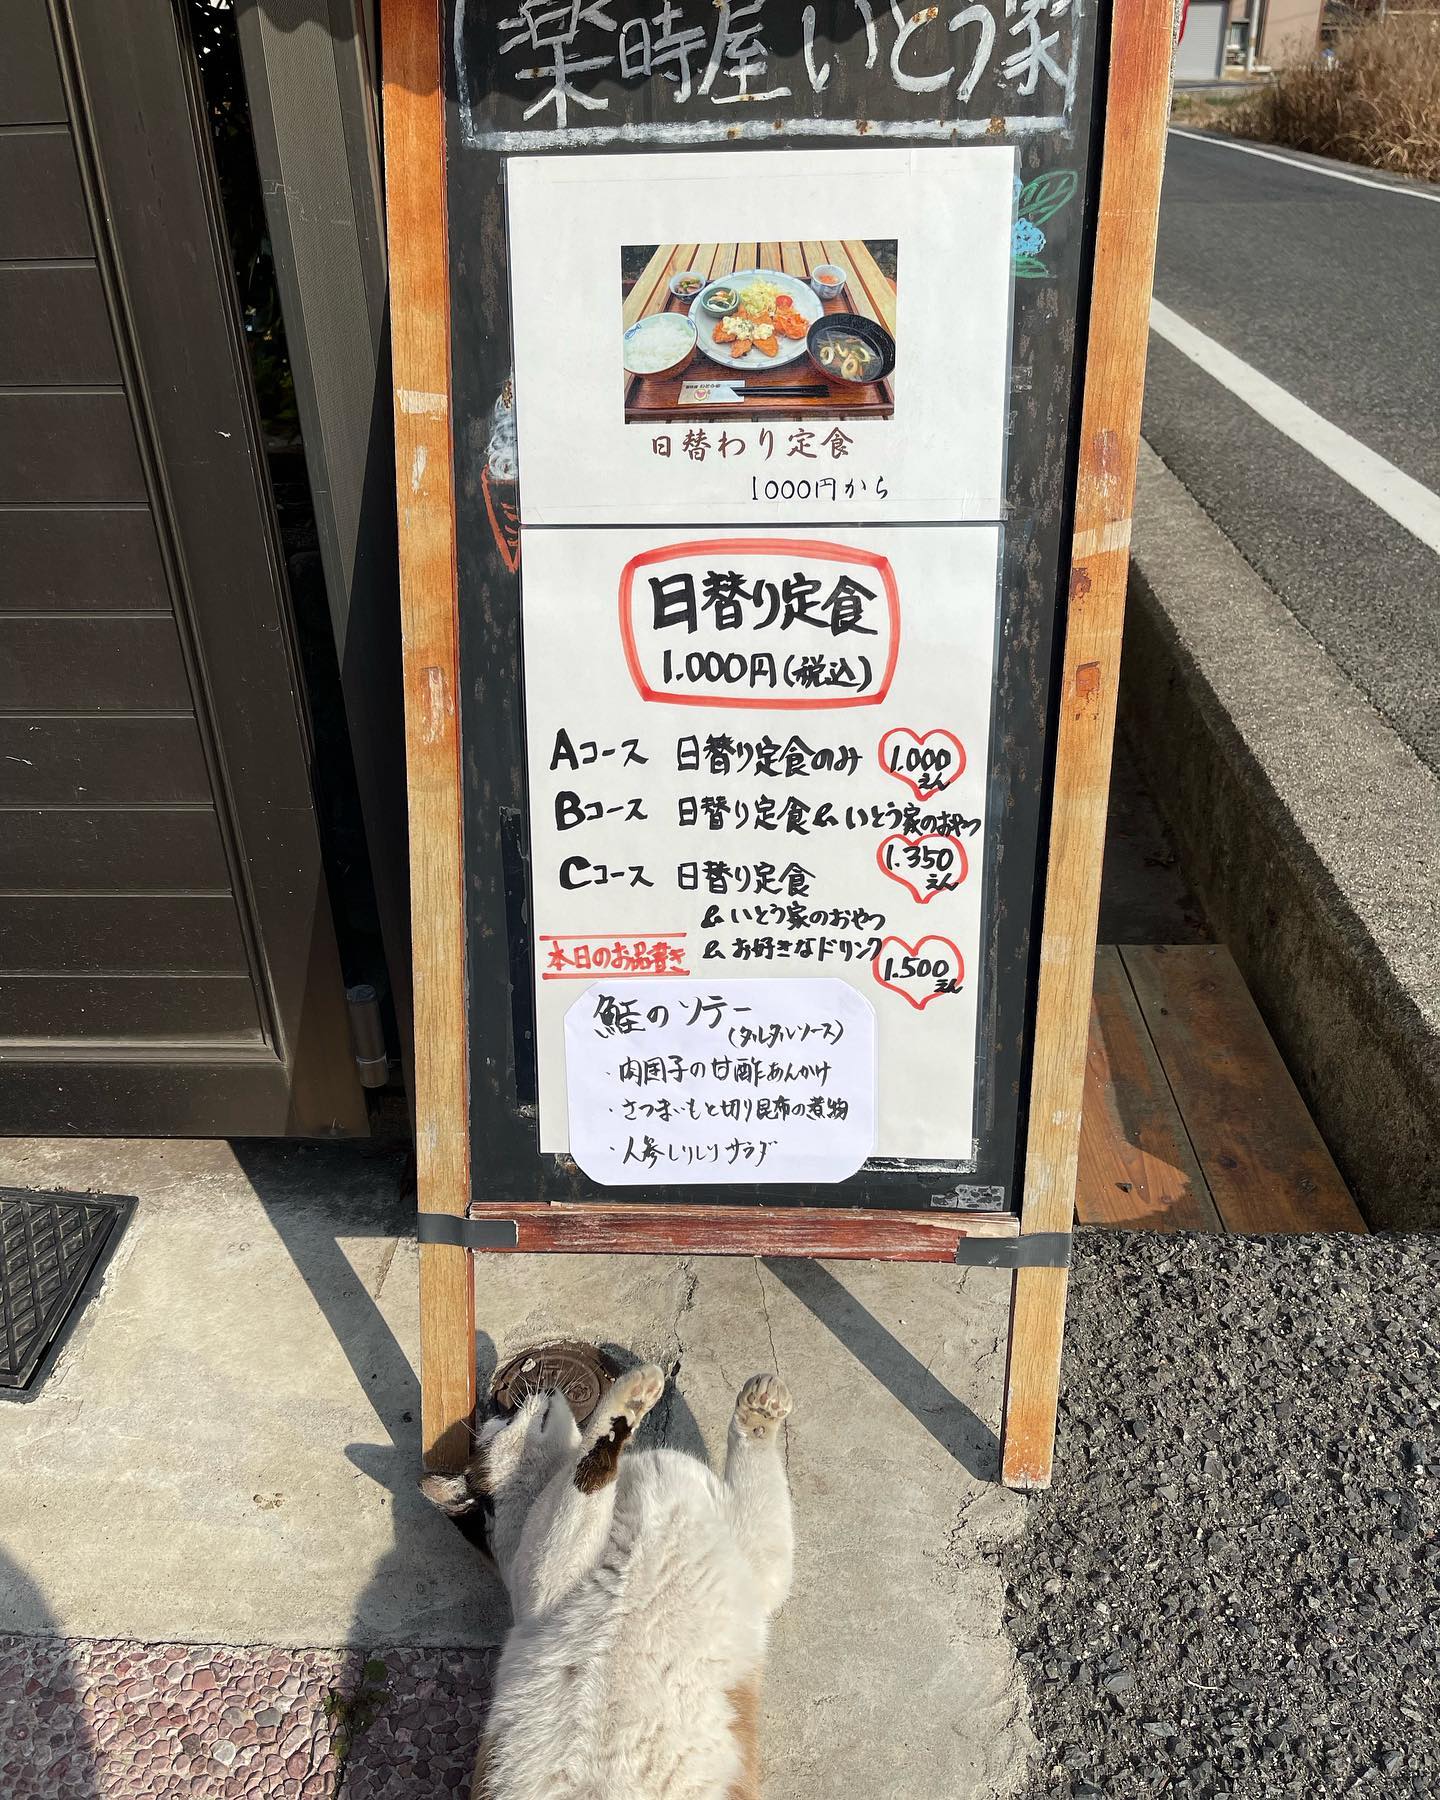 楽時屋いとう家
日替わり定食
1000円から
日替り定食
1.000円(税込)
Aコース 日替り定食のみ 1.000えん
Bコース 日替り定食&いとう家のおやつ
1.350えん
Cコース 日替り定食
&いとう家のおやつ
&お好きなドリンク 1.500えん
本日のお品書き
鮭のソテー
(タルタルソース)
・肉団子の甘酢あんかけ
・さつまいもと切り昆布の煮物
・人参しりしりサラダ